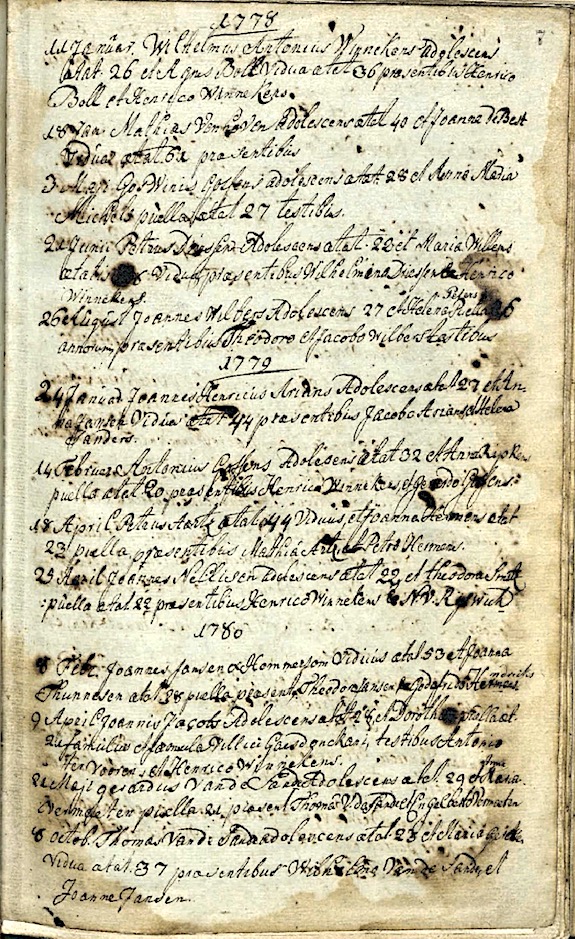 1778
11 Januar. Wilhelmus Antonius Winnekens adolescens
ætat. 26 et Agnes Boll Vidua ætat 36 præsentibus Henrico
Boll et Henrico Winnekens.
18 Jan. Mathias Venhoven adolescens ætat 40 et Joanna de Best
Vidua ætat 62 præsentibus
3 Maji Goswinus Gossens adolescens ætat. 28 et Anna Maria
Michels puella ætat 27 testibus.
21 Junii Petrus Adolescens ætat. 22 et Maria Willens
Vidua præsentibus Wilhelmina et Henrico
Winnekens.
26 August Joannes Wilbers Adolescens 27 et Helena Peters Puella 26
annorum, præsentibus Theodoro et Jacobo Wilbers testibus
1779
24 Januar Joannes Henricus Arians Adolescens ætat 27 et An-
na Jansen Vidua ætat 44 præsentibus Jacobo Arians et Helena
Sanders.
14 Februar Antonius Gossens Adolescens ætat 32 et Anna
puella ætat 20 præsentibus Henrico Winnekens, et Gerardo Gossens.
18 April Petrus Aarts ætat 44 Viduus, et Joanna Hermens ætat
23 puella, præsentibus Mathia et Petro Hermens.
25 April Joannes Nelissen adolescens ætat 22 et theodora Smitt
puella ætat 22 præsentibus Henrico Winnekens & N. V. Ryswick
1780
8 Febr. Joannes Jansen Hommersom Viduus ætat 53 et Joanna
Thunnesen ætat 38 puella præsent. Theodoro Jansen Godefrido
9 April Joannis Jacobs Adolescens ætat 28 et Dorothea puella æt.
21 famuli et famula Villici Gaesdonckani, testibus Antonio
ten Vooren et Henrico Winnekens.
21 Maji gerardus Van de Sand Adolescens ætat. 29 et Anna Maria
Vermeeten puella 21, præsent Thoma V. de Sand et Engelberto Vermeeten
8 octob. Thomas Van de Sand adolescens ætat 23 et Maria
Vidua ætat. 37 præsentibus Wilhelmo Van de Sand, et
Joanne Jansen.